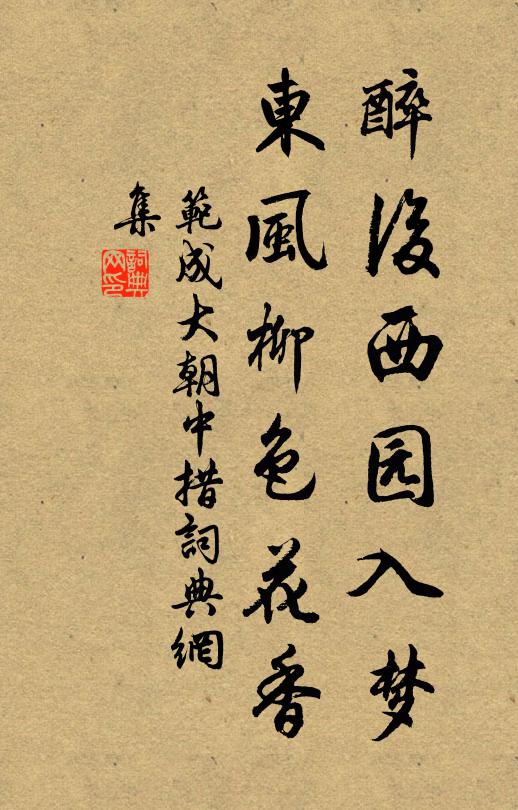 醉後西园入梦
東風柳色花香
範成大朝中措詞典網
集
詞典网印